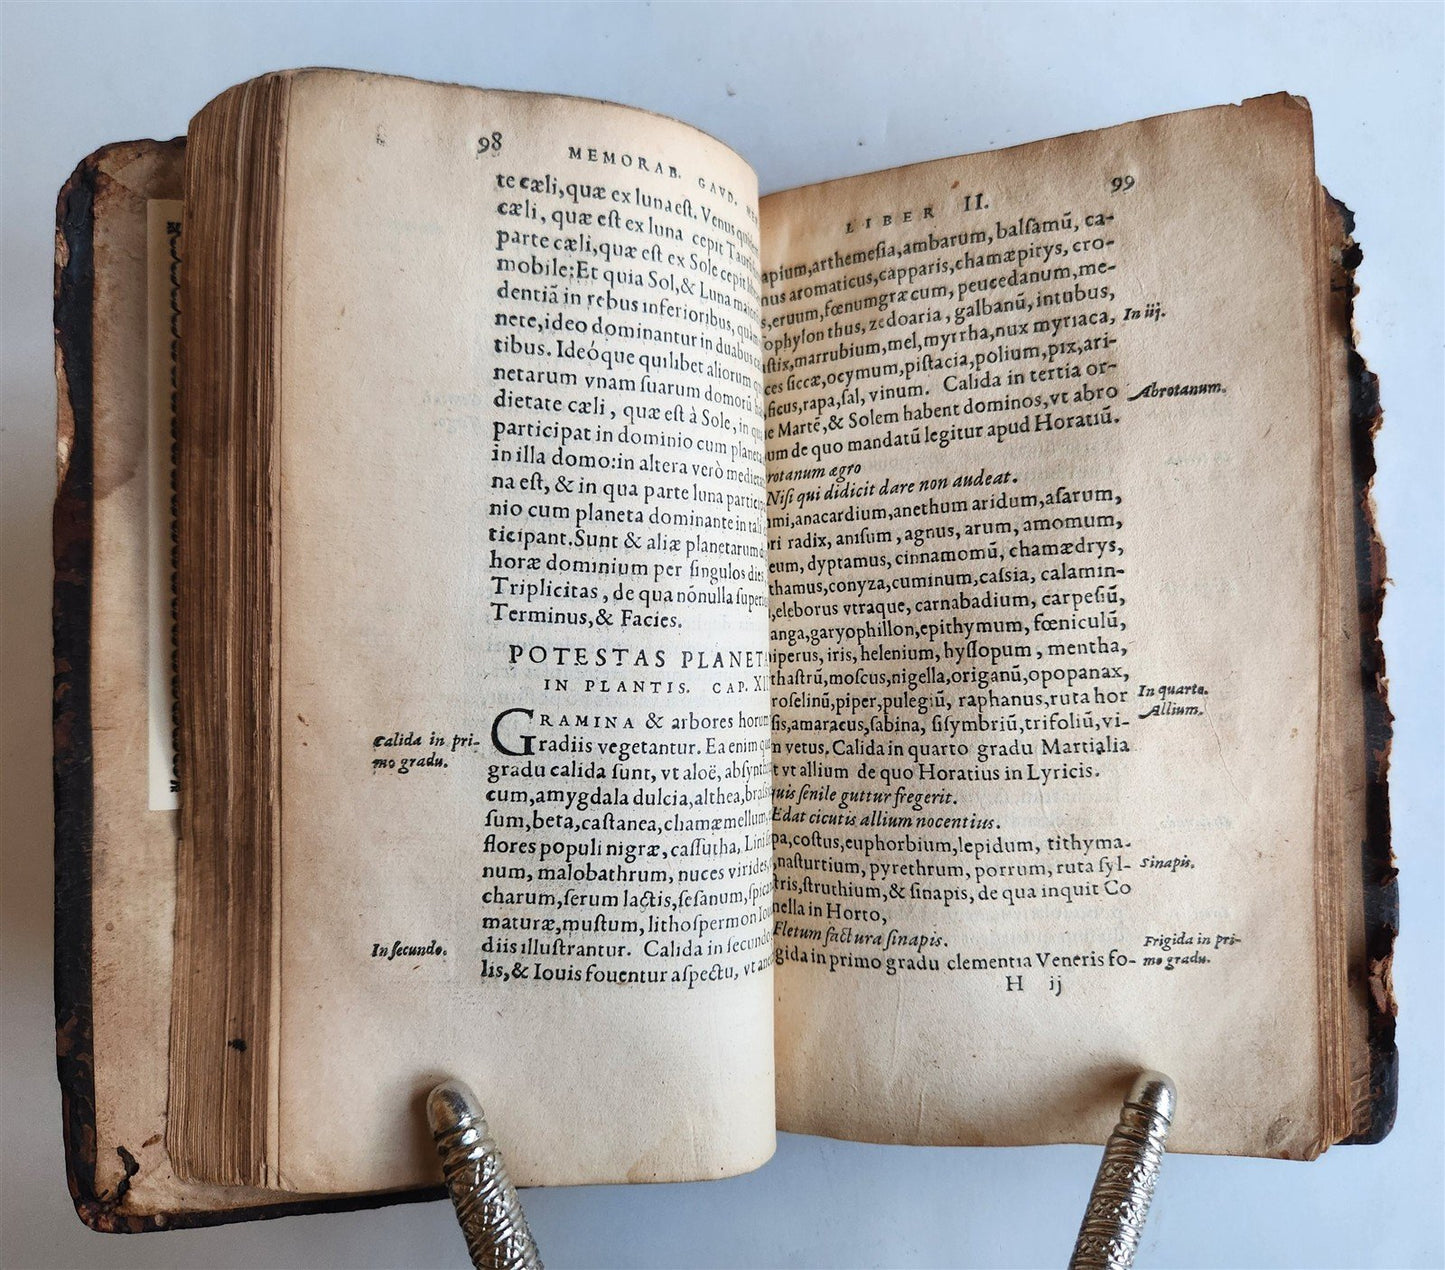 98 MEMORAB. GAVD.
te cæli, quæ ex luna eſt. Venus
cæli, quæ eſt ex luna cepit
parte cæli, quæ eſt ex Sole cepit
mobile: Et quia Sol, & Luna
dentiã in rebus inferioribus,
nete, ideo dominantur in duabus
tibus. Ideóque quilibet aliorum
netarum vnam ſuarum domorũ
dietate cæli, quæ eſt à Sole, in
participat in dominio cum
in illa domo: in altera verò
na eſt, & in qua parte luna
nio cum planeta dominante in tali
ticipant. Sunt & aliæ planetarum
horæ dominium per ſingulos dies,
Triplicitas, de qua nõnulla
Terminus, & Facies.
POTESTAS
IN PLANTIS. CAP.
GRAMINA & arbores
radiis vegetantur. Ea enim
Calida in pri-
mo gradu.
gradu calida ſunt, vt aloë,
cum, amygdala dulcia, althea,
ſum, beta, caſtanea, chamæmellum,
flores populi nigræ, caſſutha,
num, malobathrum, nuces virides,
charum, ſerum lactis, ſeſanum,
maturæ, muſtum, lithoſpermon
diis illuſtrantur. Calida in
In ſecundo.
lis, & Iouis fouentur aſpectu, vt
LIBER II. 99
apium, arthemeſia, ambarum, balſamũ, ca-
aromaticus, capparis, chamæpitys, cro-
eruum, fœnumgræcum, peucedanum, me-
thus, zedoaria, galbanũ, intubus,
marrubium, mel, myrrha, nux myriaca,
In iij.
ſiccæ, ocymum, piſtacia, polium, pix, ari-
ficus, rapa, ſal, vinum. Calida in tertia or-
Martẽ, & Solem habent dominos, vt abro
Abrotanum.
de quo mandatũ legitur apud Horatiũ.
ægro
Niſi qui didicit dare non audeat.
anacardium, anethum aridum, aſarum,
radix, aniſum, agnus, arum, amomum,
dyptamus, cinnamomũ, chamædrys,
conyza, cuminum, caſsia, calamin-
eleborus vtraque, carnabadium, carpeſiũ,
garyophillon, epithymum, fœniculũ,
iris, helenium, hyſſopum, mentha,
moſcus, nigella, origanũ, opopanax,
piper, pulegiũ, raphanus, ruta hor
In quarto.
Allium.
amaracus, ſabina, ſiſymbriũ, trifoliũ, vi-
vetus. Calida in quarto gradu Martialia
vt allium de quo Horatius in Lyricis.
ſenile guttur fregerit.
Edat cicutis allium nocentius.
coſtus, euphorbium, lepidum, tithyma-
naſturtium, pyrethrum, porrum, ruta ſyl-
Sinapis.
ſtruthium, & ſinapis, de qua inquit Co
in Horto,
Fletum factura ſinapis.
in primo gradu clementia Veneris fo-
Frigida in pri-
mo gradu.
H ij